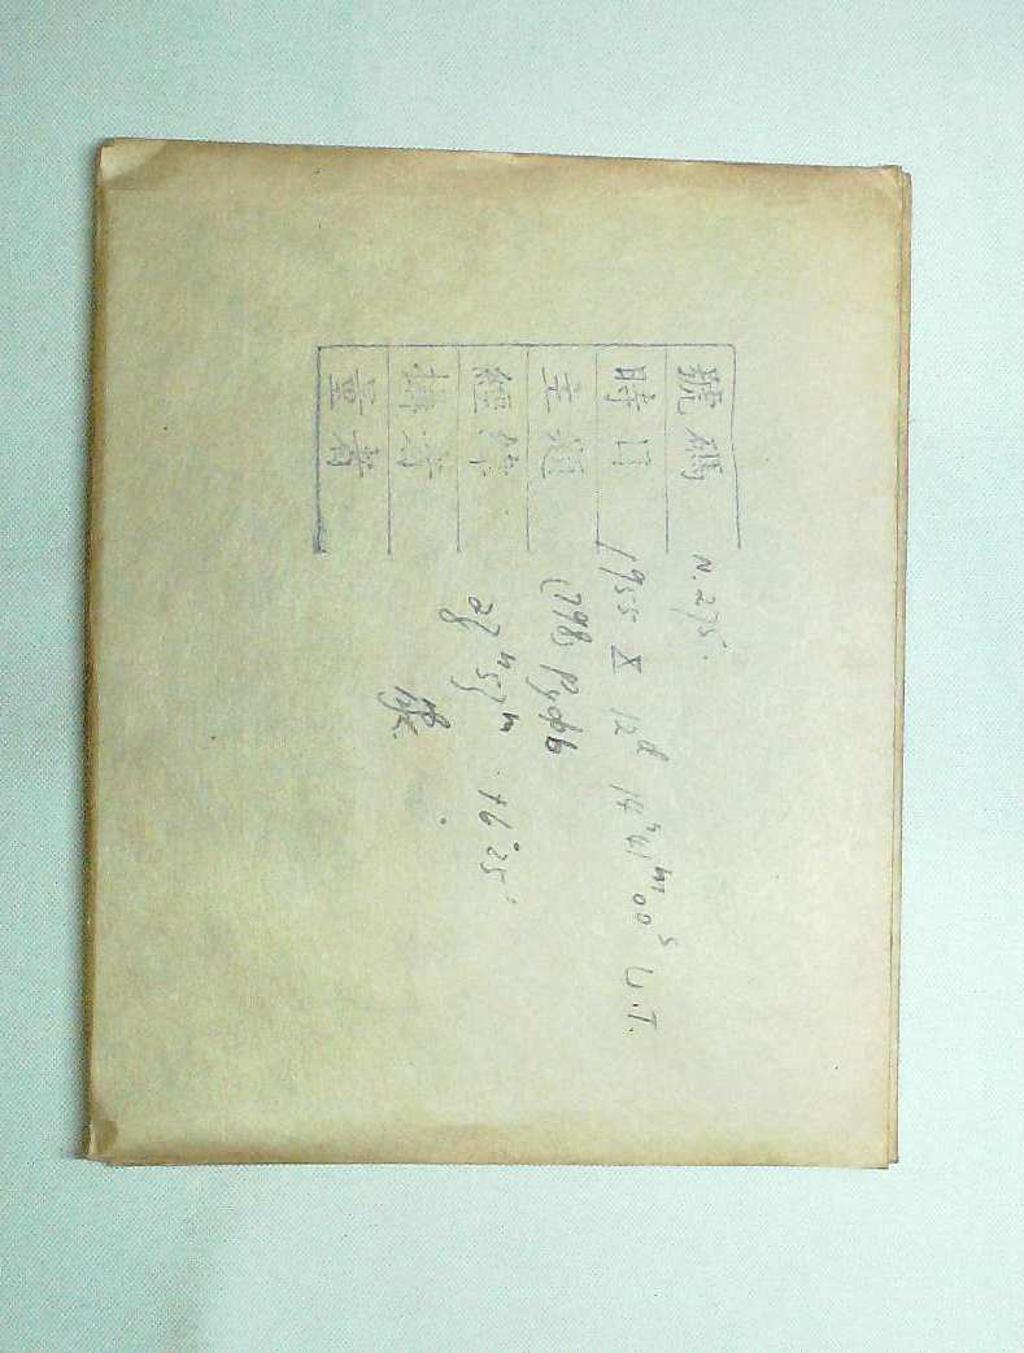 號碼 N. 275.
時日 1955 X 12ᵈ 14ʰ41ᵐ00ˢ U.T.
主題 (798) Руфь
經緯 57ᵐ +6°25′
攝者
量者